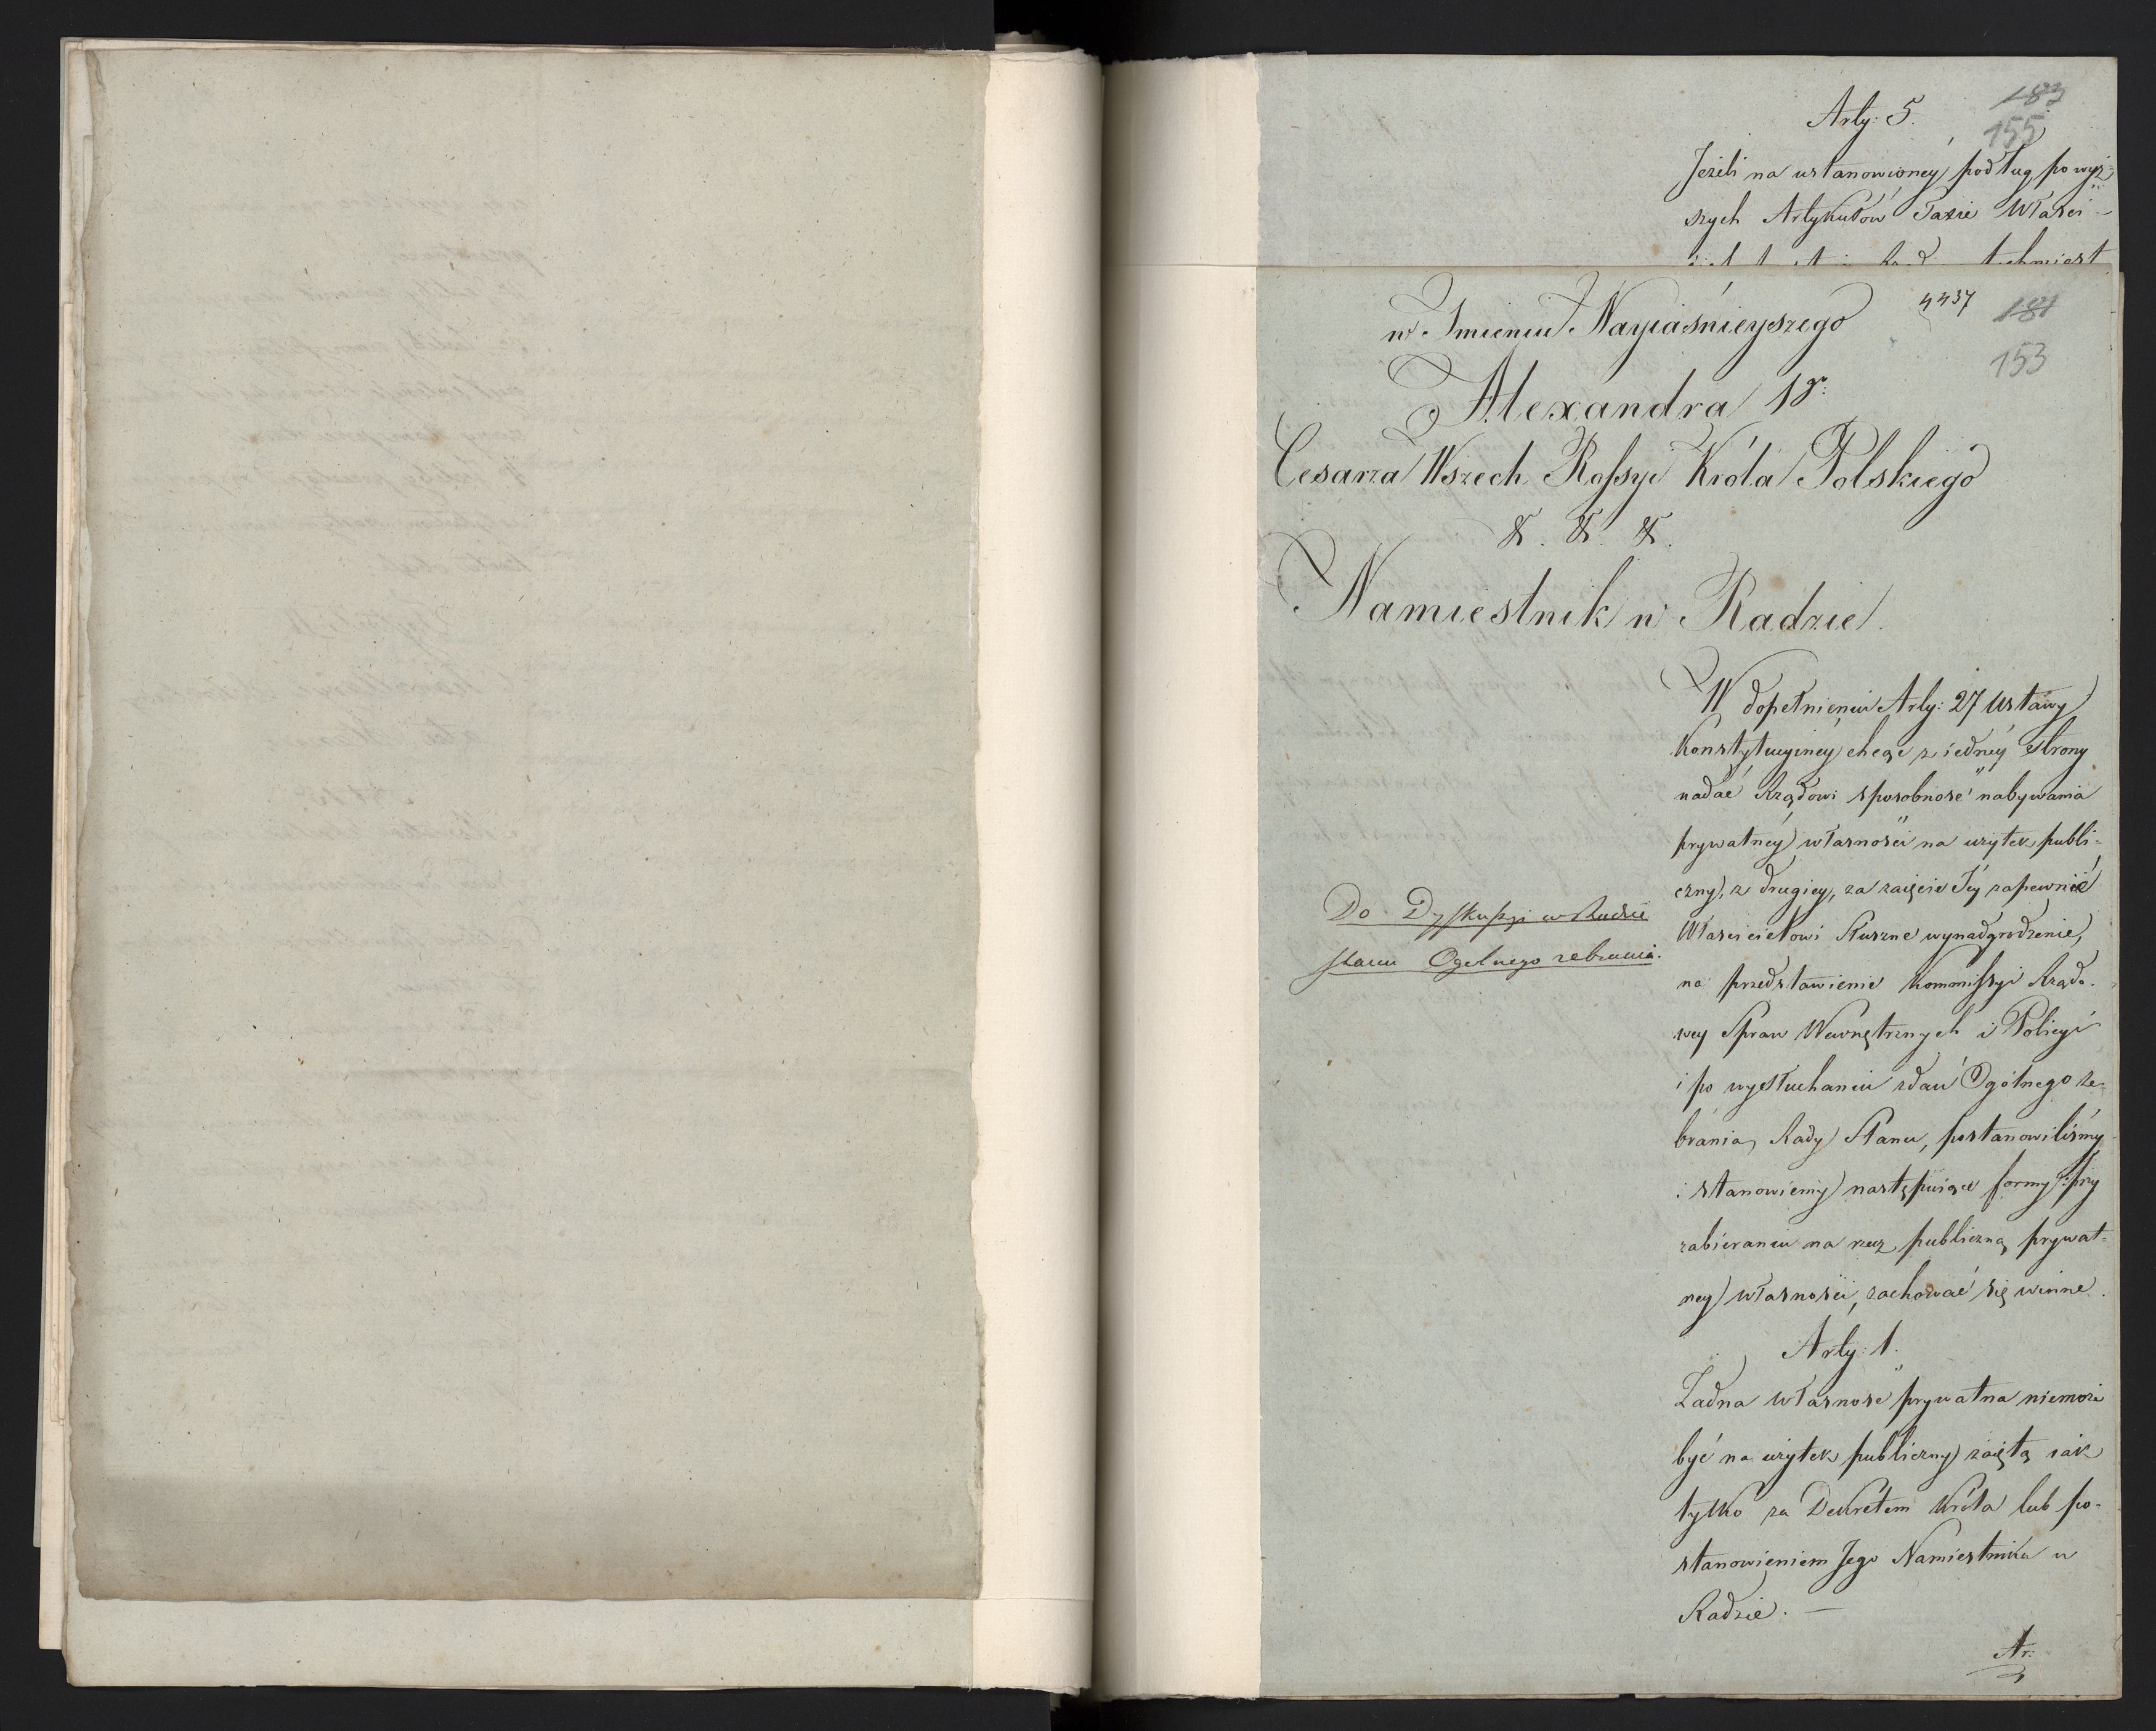 183
Arty: 5.
155
Jeżeli na ustanowioney podług powyż=
szych Artykułów Taxie Właści-
4437
181
w Imieniu Nayiaśnieyszego
153
Alexandra 1go:
Cesarza Wszech Rossyi Króla Polskiego
&. &. &.
Namiestnik w Radzie.
W dopełnieniu Arty: 27 Ustawy
Konstytucyiney chcąc z iedney strony
nadać Rządowi sposobność nabywania
prywatney własności na użytek publi=
czny, z drugiey, za zaięcie Jey zapewnić
Właścicielowi słuszne wynadgrodzenie,
na przedstawienie Kommissyi Rządo-
wey Spraw Wewnętrznych i Policyi
i po wysłuchaniu zdań Ogólnego ze-
brania Rady Stanu, postanowiliśmy
i stanowiemy następuiące formy: przy
zabieraniu na rzecz publiczną prywat=
ney własności, zachować się winne.
Do Dysskussyi w Radzie
stanu Ogolnego zebrania.
Arty: 1.
Żadna własność prywatna niemoże
być na użytek publiczny zaiętą iak
tylko za Dekretem Króla lub po-
stanowieniem Jego Namiestnika w
Radzie. —
Ar: